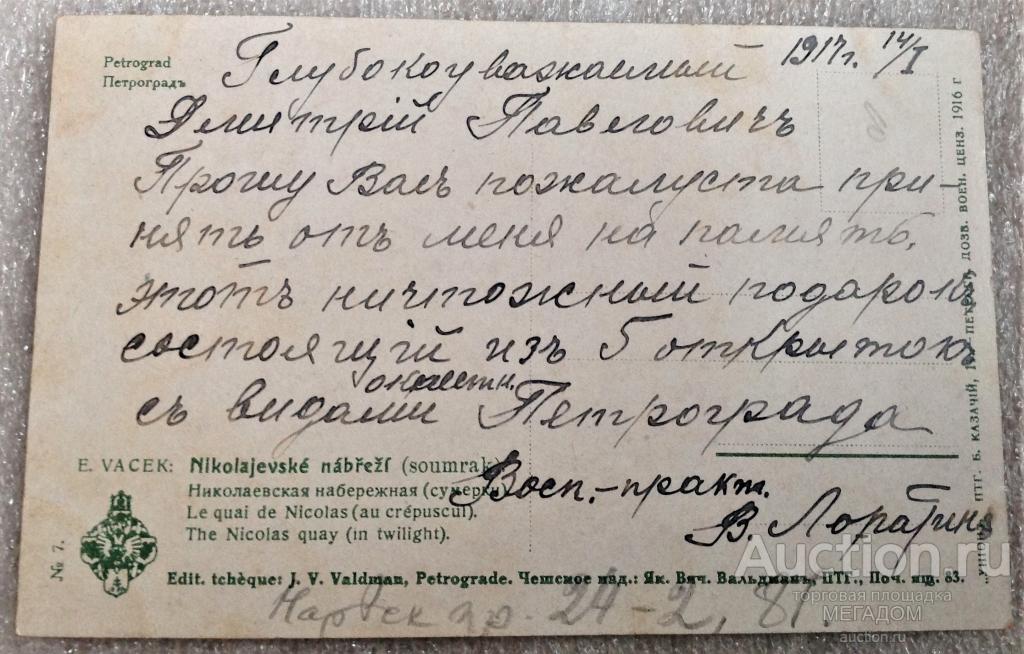 Petrograd
Петроградъ
1917г. 14/I
Глубокоуважаемый
Дмитрій Павловичъ
Прошу Васъ пожалуста при-
нять отъ меня на память,
этотъ ничтожный подарокъ
состоящій изъ 5 открытокъ
съ видами окрестн. Петрограда
Восп.-практ.
В. Лорат
E. VACEK: Nikolajevské nábřeží (soumrak)
Николаевская набережная (сумерки)
Le quai de Nicolas (au crépuscul).
The Nicolas quay (in twilight).
№ 7.
Edit. tchèque: J. V. Valdman, Petrograde. Чешское изд.: Як. Вяч. Вальдманъ, ПТГ., Поч. ящ. 63.
24-2, 81.
ПТГ. Б. КАЗАЧІЙ, ДОЗВ. ВОЕН. ЦЕНЗ. 1916 г
Auction.ru
торговая площадка
МЕГАДОМ
auction.ru